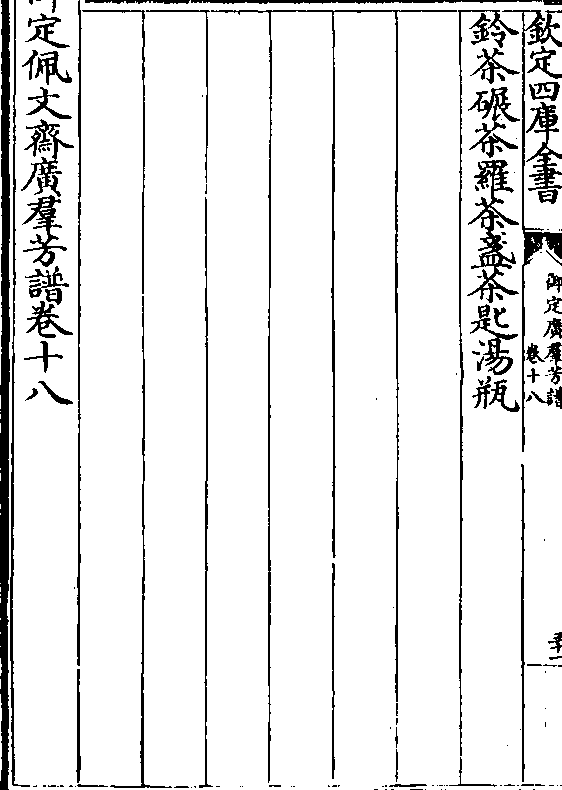 欽定四庫全書
御定廣羣芳譜
卷十八
鈴茶碾茶羅茶盞茶匙湯瓶
御定佩文齋廣羣芳譜卷十八